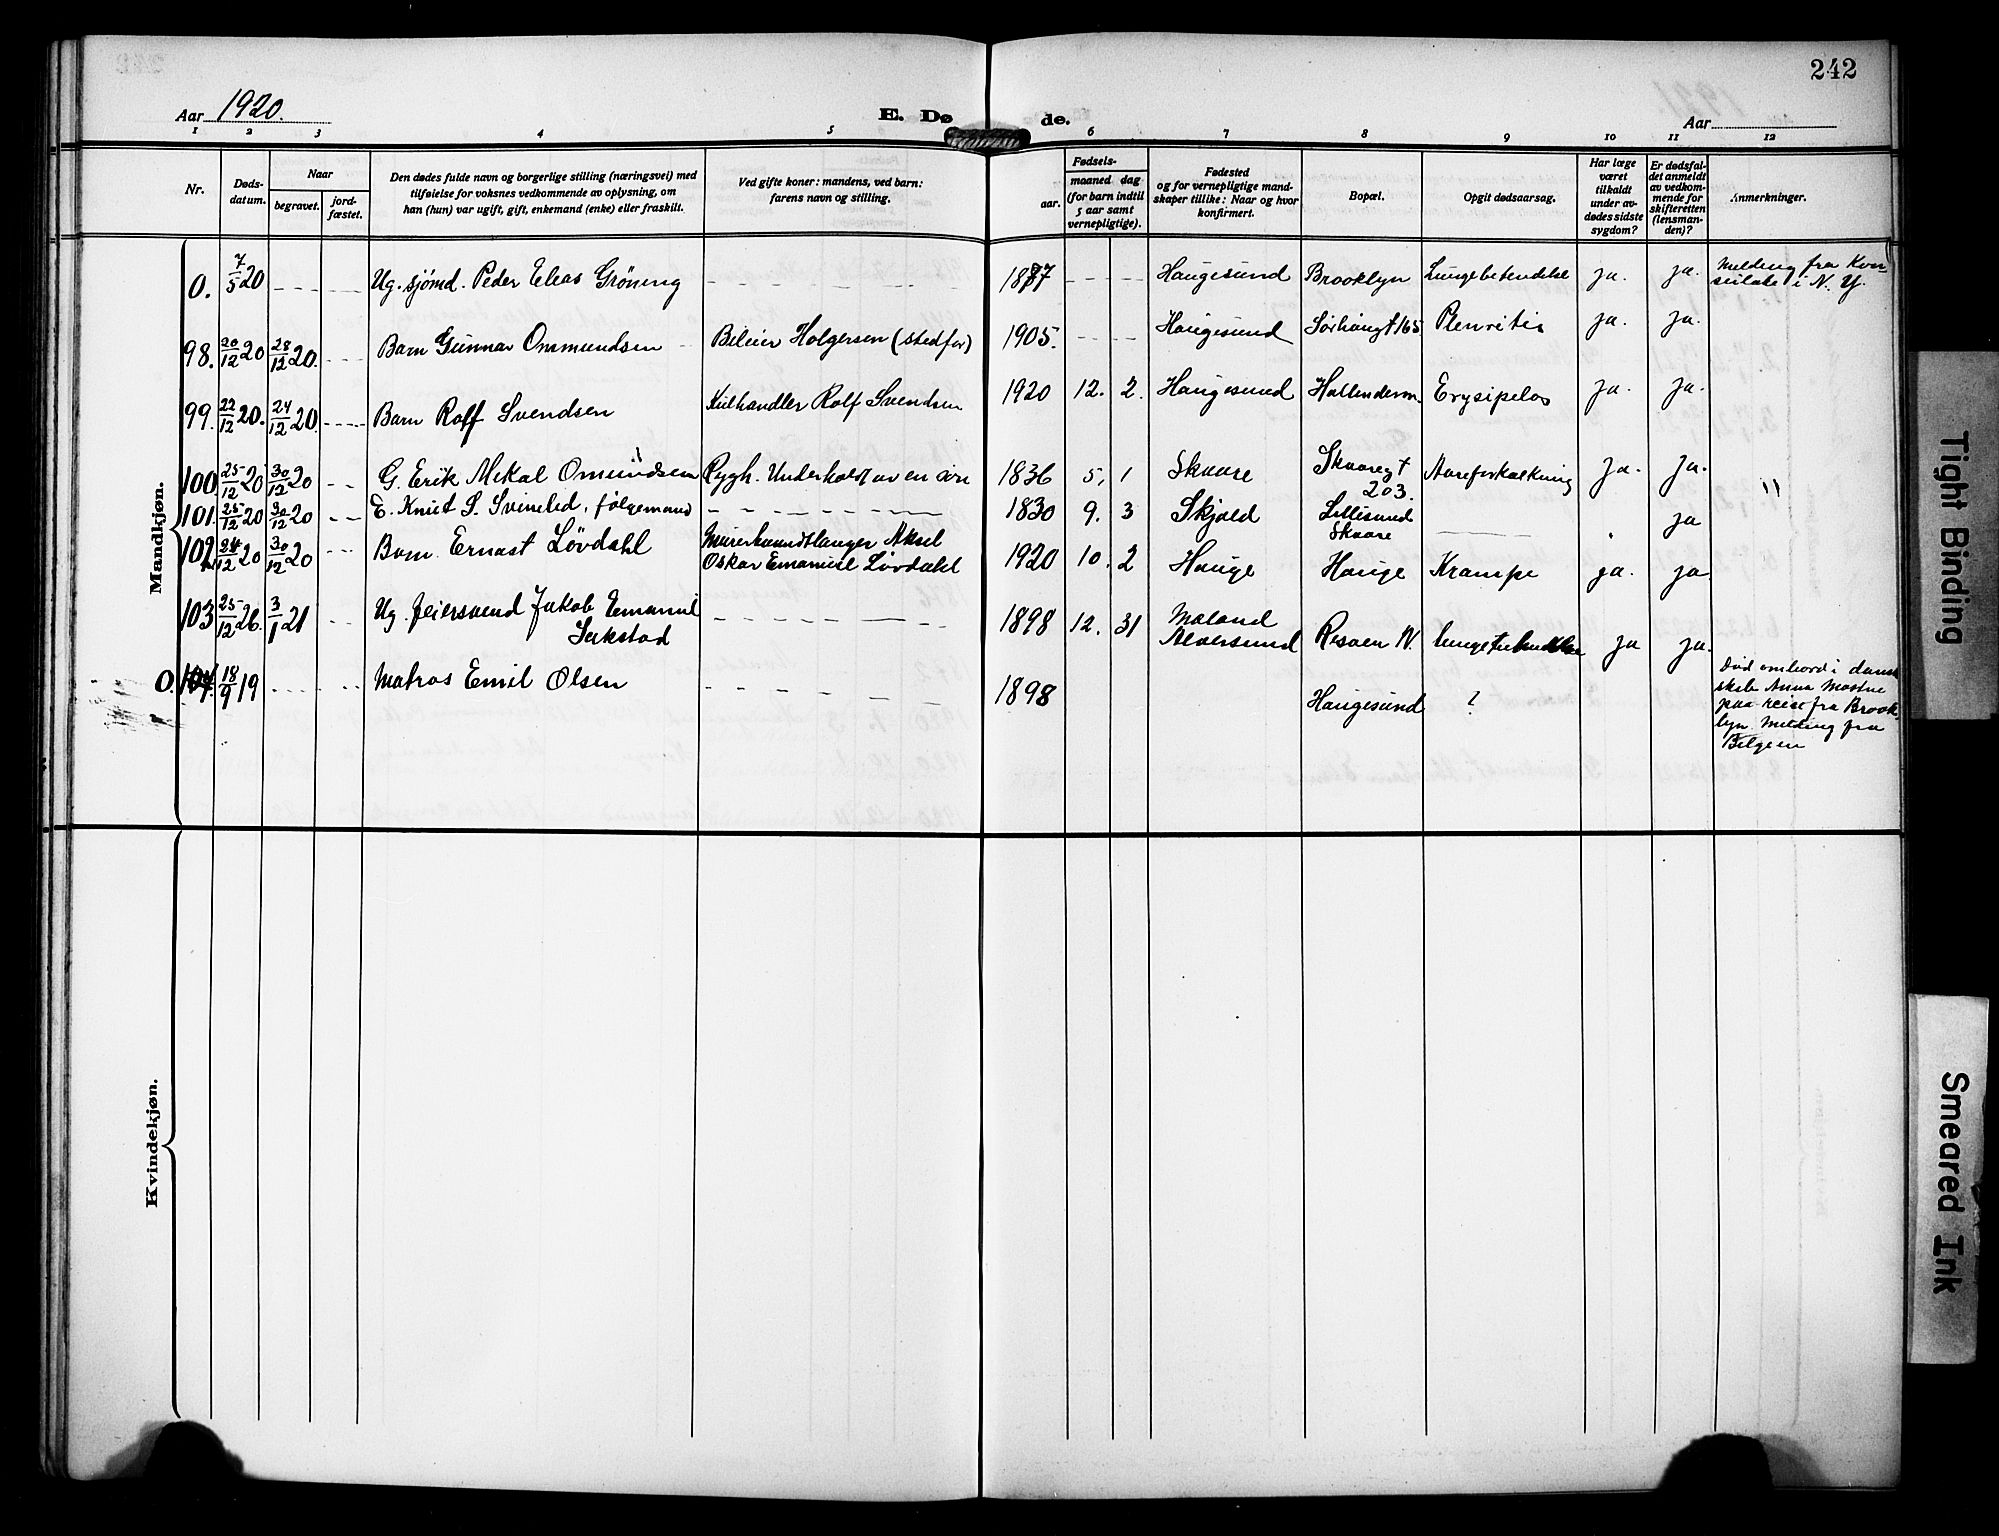 242
Aar 1920. E. Dø de. Aar
1 2 3 4 5 6 7 8 9 10 11 12
Nr. Døds-datum. Naar begravet. jord-fæstet. Den dødes fulde navn og borgerlige stilling (næringsvei) med tilføielse for voksnes vedkommende av oplysning, om han (hun) var ugift, gift, enkemand (enke) eller fraskilt. Ved gifte koner: mandens, ved barn: farens navn og stilling. Fødsels- aar. maaned dag (for barn indtil 5 aar samt vernepligtige). Fødested og for vernepligtige mand-skaper tillike: Naar og hvor konfirmert. Bopæl. Opgit dødsaarsag. Har læge været tilkaldt under av-dødes sidste sygdom? Er dødsfal-det anmeldt av vedkom-mende for skifteretten (lensman-den)? Anmerkninger.
Mandkjøn.
0. 7/5 20 Ug. sjömd. Peder Elias Gröning 1877 Haugesund Brooklyn Lungebetendelse ja. ja. Melding fra Kon-sulatet i N. Y.
98. 20/12 20 28/12 20. Barn Gunnar Ommundsen Holgersen (stedfar) 1905. Haugesund Sørhaugt 165 Pleuritis ja. ja.
99. 22/12 20. 24/12 20. Barn Rolf Svendsen Kulhandler Rolf Svendsen 1920 12. 2. Haugesund Erysipelas ja. ja.
100. 25/12 20 30/12 20 G. Erik Mikal Omundsen Rygh. Underholdt av en 1836 5. 1 Skaare Skaaregt 203. Aareforkalkning ja. ja. "
101. 25/12 20 30/12 20 E. Knut S. følgemand 1830 9. 3 Skjold Lillesund Skaare ja
102 24/12 20 30/12 20 Barn Ernast Lövdahl Murerhaandtlanger Aksel Oskar Emanuel Lövdahl 1920 10. 2 Hauge Hauge Krampe ja. ja
103 25/12 26. 3/1 21 Ug. feiersvend Jakob Emanuel 1898 12. 31 Alversund N. ja ja.
0. 104. 18/9 19 Matros Emil Olsen 1898 Haugesund ? Död ombord i dansk skib Anna paa reise fra Brook-lyn. Melding fra
Kvindekjøn.
Tight Binding
Smeared Ink